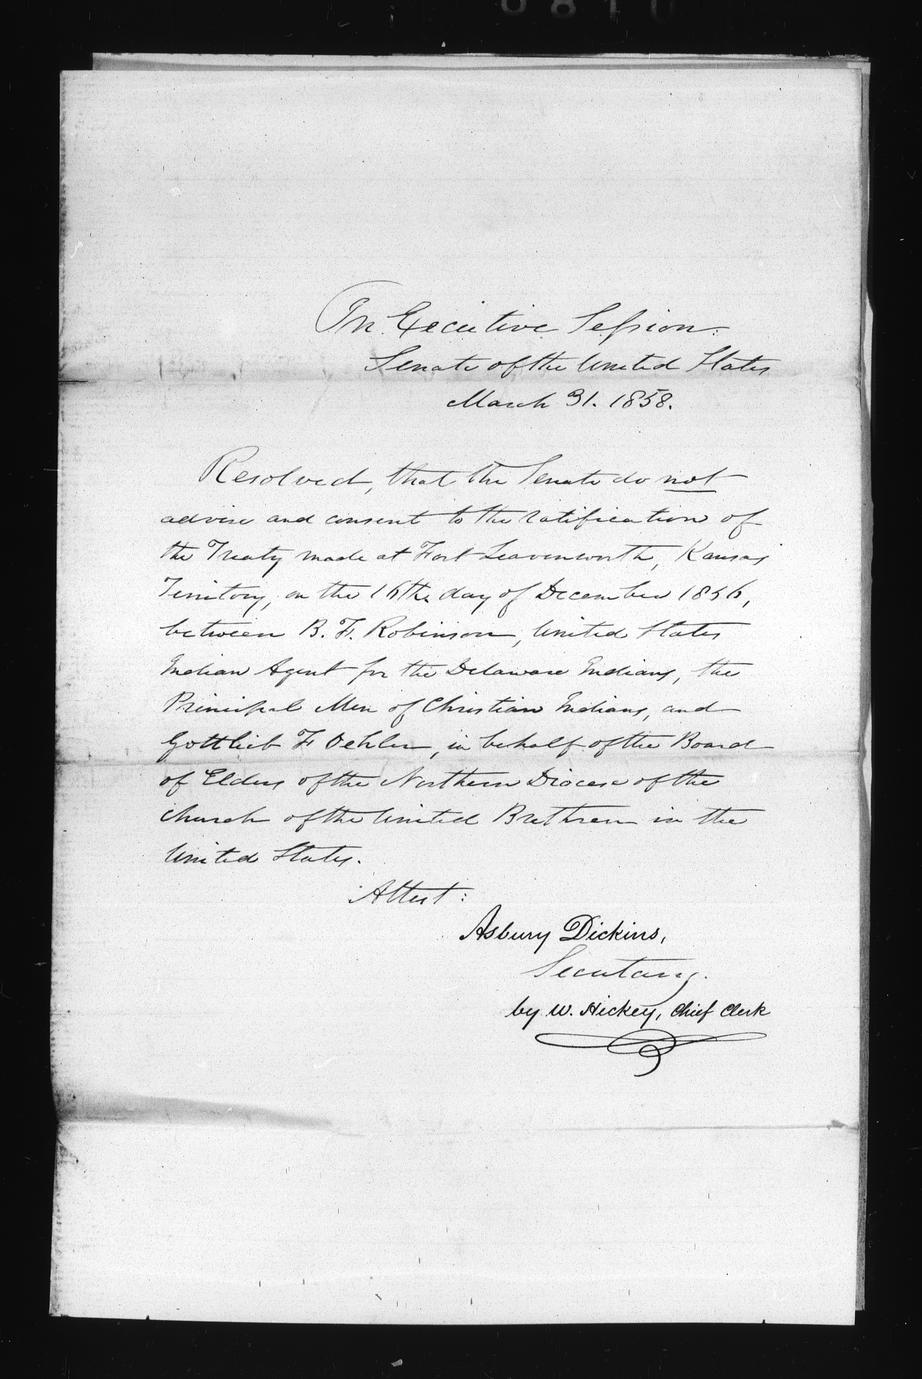 In Executive Session.
Senate of the United States
March 31. 1858.
Resolved, that the Senate do not
advise and consent to the ratification of
the Treaty made at Fort Leavenworth, Kansas
Territory, on the 16th day of December 1856,
between B. F. Robinson, United States
Indian Agent for the Delaware Indians, the
Principal Men of Christian Indians, and
Gottlieb F Oehler, in behalf of the Board
of Elders of the Northern Diocese of the
church of the United Brethren in the
United States.
Attest:
Asbury Dickins,
Secretary.
by W. Hickey, Chief Clerk